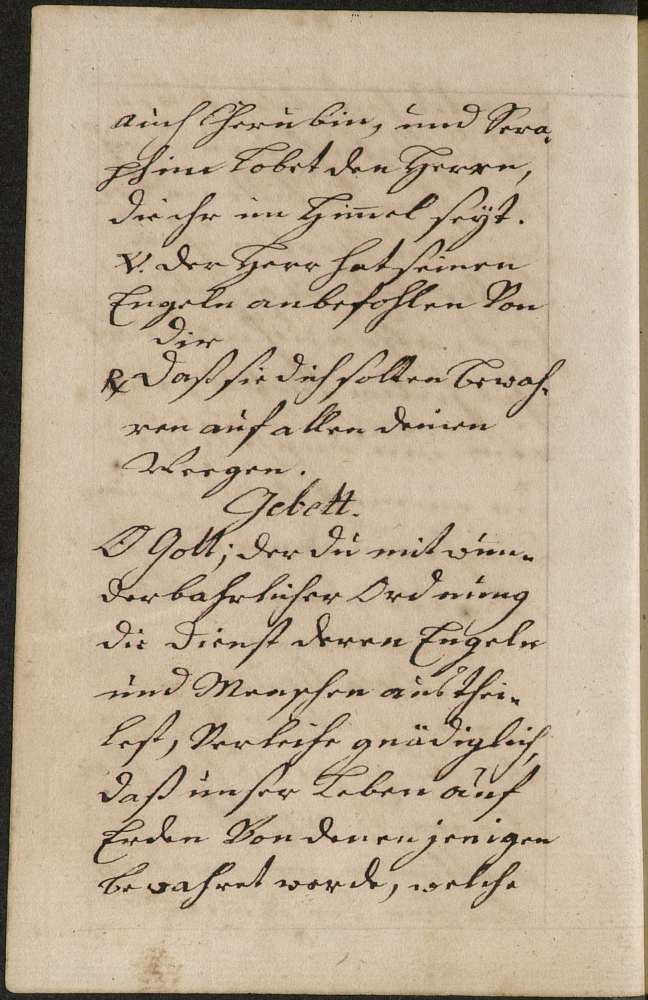 auch Cherubin, und Sera,
phim Lobet den Herren,
die ihr im Himel seÿt.
V. der Herr hat seinen
Engeln anbefohlen Von
dir
R daß sie dich solten bewah,
ren auf allen deinen
Weegen.
Gebett.
O Gott; der du mit wun=
derbahrlicher Ordnung
die Dienst deren Engeln
und Menschen austhei=
lest, Verleihe gnädiglich,
daß unser Leben auf
Erden Von denen jenigen
bewahret werde, welche